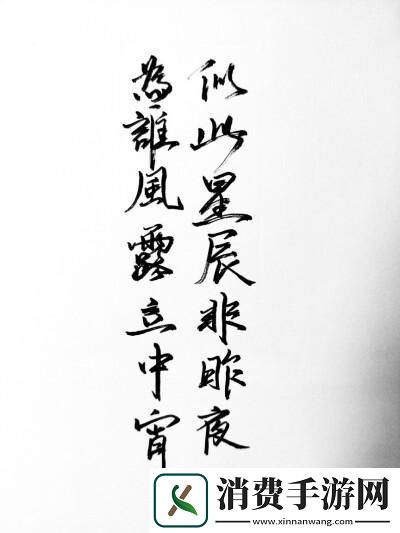 似此星辰非昨夜
為誰風露立中宵
消费手游网
www.xinnanwang.com